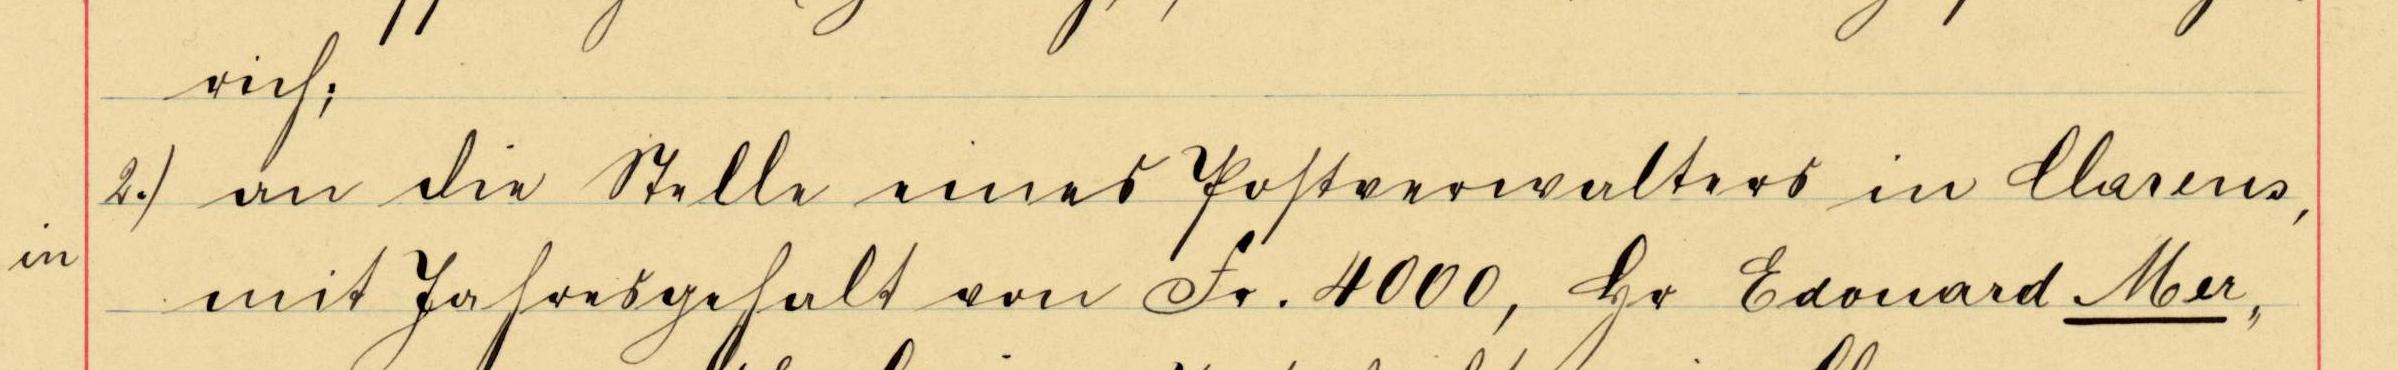 rich;
2.) an die Stelle eines Postverwalters in Clarens,
in
mit Jahresgehalt von Fr. 4000, Hr Edouard Mer„